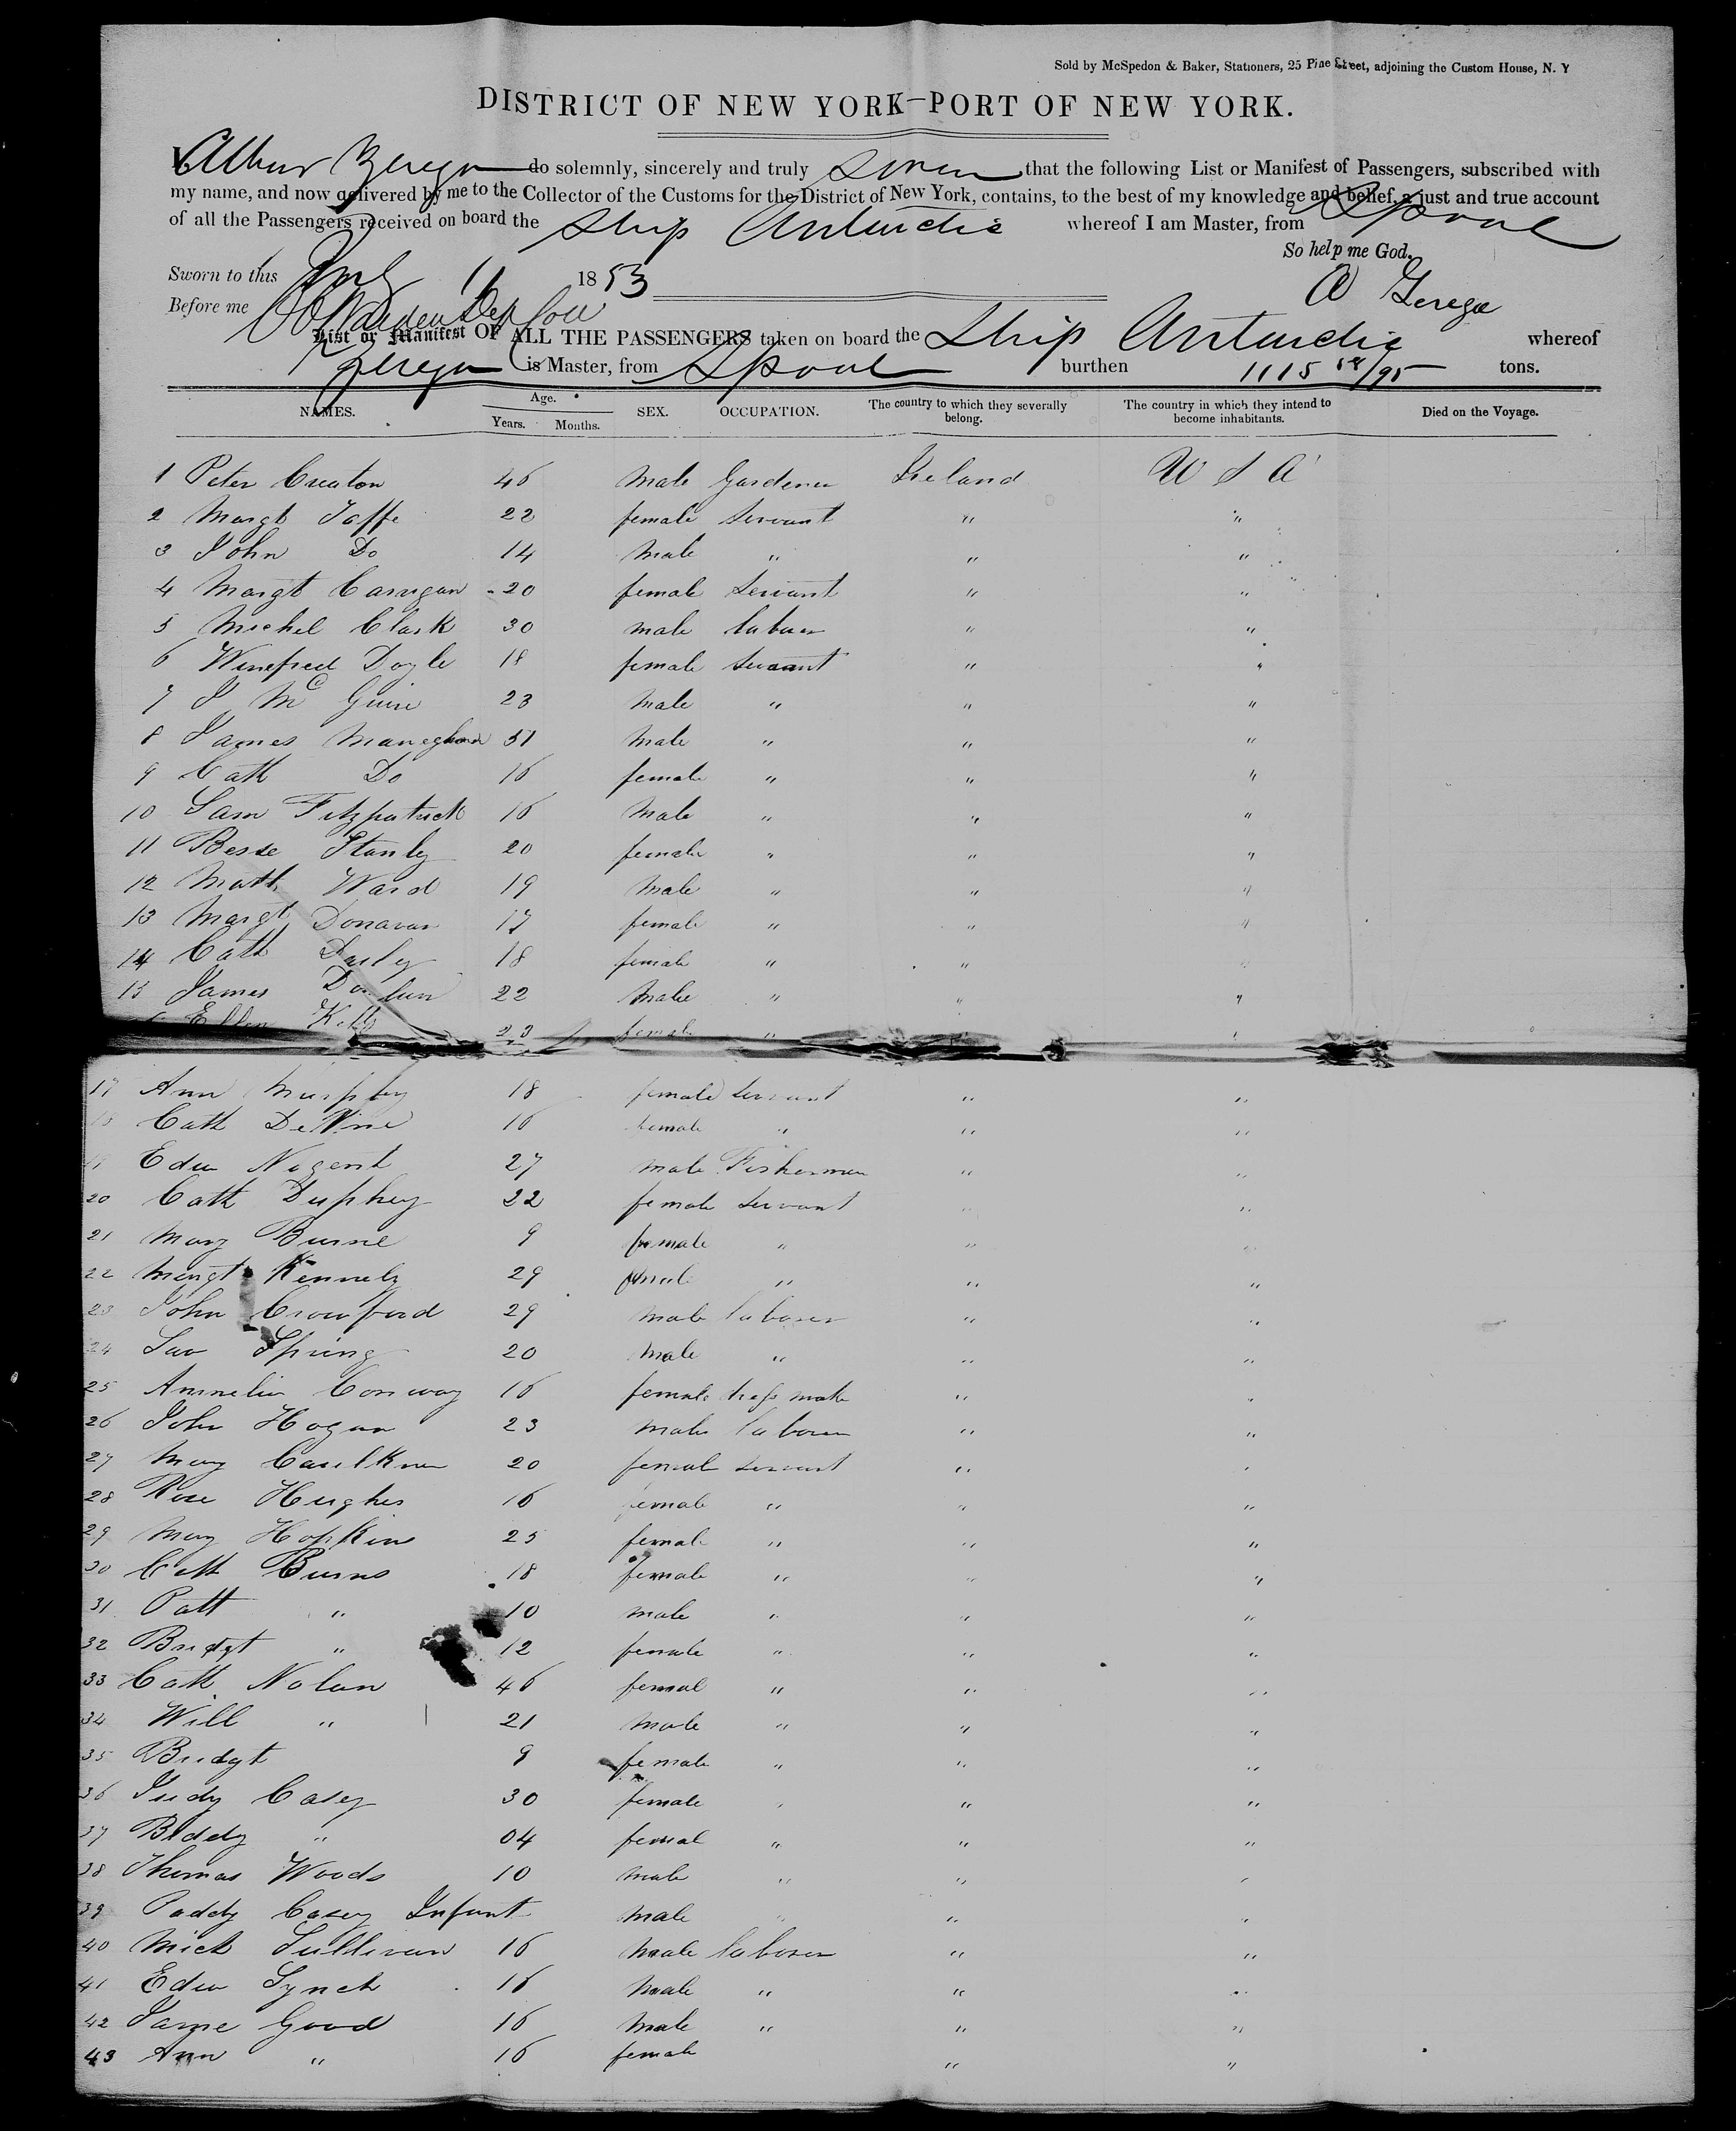 Sold by McSpedon & Baker, Stationers, 25 Pine Street, adjoining the Custom House, N. Y
DISTRICT OF NEW YORK—PORT OF NEW YORK.
I, Zerega do solemnly, sincerely and truly swear that the following List or Manifest of Passengers, subscribed with
my name, and now delivered by me to the Collector of the Customs for the District of New York, contains, to the best of my knowledge and belief, a just and true account
of all the Passengers received on board the Ship Antarctic whereof I am Master, from Lpool
So help me God.
Sworn to this 11 1853
A Zerega
Before me
List or Manifest OF ALL THE PASSENGERS taken on board the Ship Antarctic whereof
Zerega is Master, from Lpool burthen 1115 /95 tons.
NAMES. Age. Years. Months. SEX. OCCUPATION. The country to which they severally belong. The country in which they intend to become inhabitants. Died on the Voyage.
1 Peter Creaton 46 male Gardener Ireland U S A
2 Margt Taffe 22 female Servant " "
3 John Do 14 male " " "
4 Margt Carrigan 20 female Servant " "
5 Michel Clark 30 male laborer " "
6 Winefred Doyle 18 female servant " "
7 J McGuire 23 male " " "
8 James 31 male " " "
9 Cath Do 16 female " " "
10 Sam Fitzpatrick 16 male " " "
11 Besse Stanly 20 female " " "
12 Math Ward 19 male " " "
13 Margt Donavan 17 female " " "
14 Cath Darly 18 female " " "
15 James 22 male " " "
Ellen Kelly 23 female " "
17 Ann Murphy 18 female servant " "
18 Cath DeVine 16 female " " "
19 Edw Nugent 27 male Fisherman " "
20 Cath Duphey 22 female servant " "
21 Mary Burne 9 female " " "
22 Margt Kennely 29 female " " "
23 John Crowford 29 male laborer " "
24 Law Spring 20 male " " "
25 Ammelia Conway 16 female dress make " "
26 John Hogan 23 male laborer " "
27 Mary 20 female servant " "
28 Rose Hughes 16 female " " "
29 Mary Hopkins 25 female " " "
30 Cath Burns 18 female " " "
31 Patt " 10 male " " "
32 Bridgt " 12 female " " "
33 Cath Nolan 46 femal " " "
34 Will " 21 male " " "
35 Bridgt 9 female " " "
36 Judy Casey 30 female " " "
37 Biddy " 04 femal " " "
38 Thomas Woods 10 male " " "
39 Paddy Casey Infant male " " "
40 Mick Sullivan 16 male laborer " "
41 Edw Lynch 16 male " " "
42 Jame Good 16 male " " "
43 Ann " 16 female " "